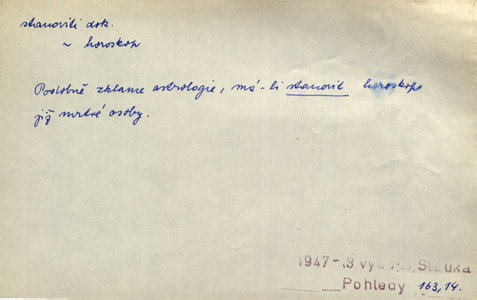 stanoviti dok.
~ horoskop
Podobně zklame astrologie, má-li stanovit horoskop
již mrtvé osoby.
1947-
Pohledy 163,14.